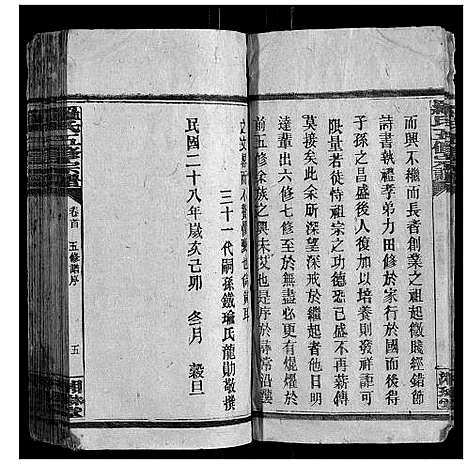 而興不穪而長者創業之祖起微賤經錯節
詩書執禮孝弟力田修於家行於國而後得
子孫之昌盛後人復加以培養則發祥詎可
限量若徒恃祖宗之功德恐已盛不再薪傳
莫接矣此余所深望深戒於繼起者他日明
達輩出六修七修至於無盡必更有焜燿於
前五修余族之興未艾也是序於尋常沿襲
三十一代嗣孫鐵瑜氏龍勛敬撰
民國二十八年歲亥己卯 冬月 穀旦
氏五修
卷首 五修譜序 五